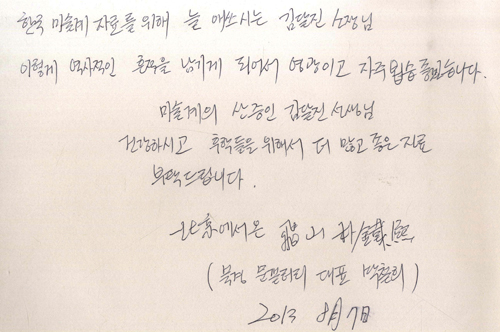 한국 미술계 자료를 위해 늘 애쓰시는 김달진 소장님
이렇게 역사적인 흔적을 남기게 되어서 영광이고 자주 뵙
미술계의 산증인 김달진 선생님
건강하시고 후학들을 위해서 더 많고 좋은 자료
부탁드립니다.
北京에서온 山 朴鐵熙
(북경 문갤러리 대표 박철희)
2013 8月 7日